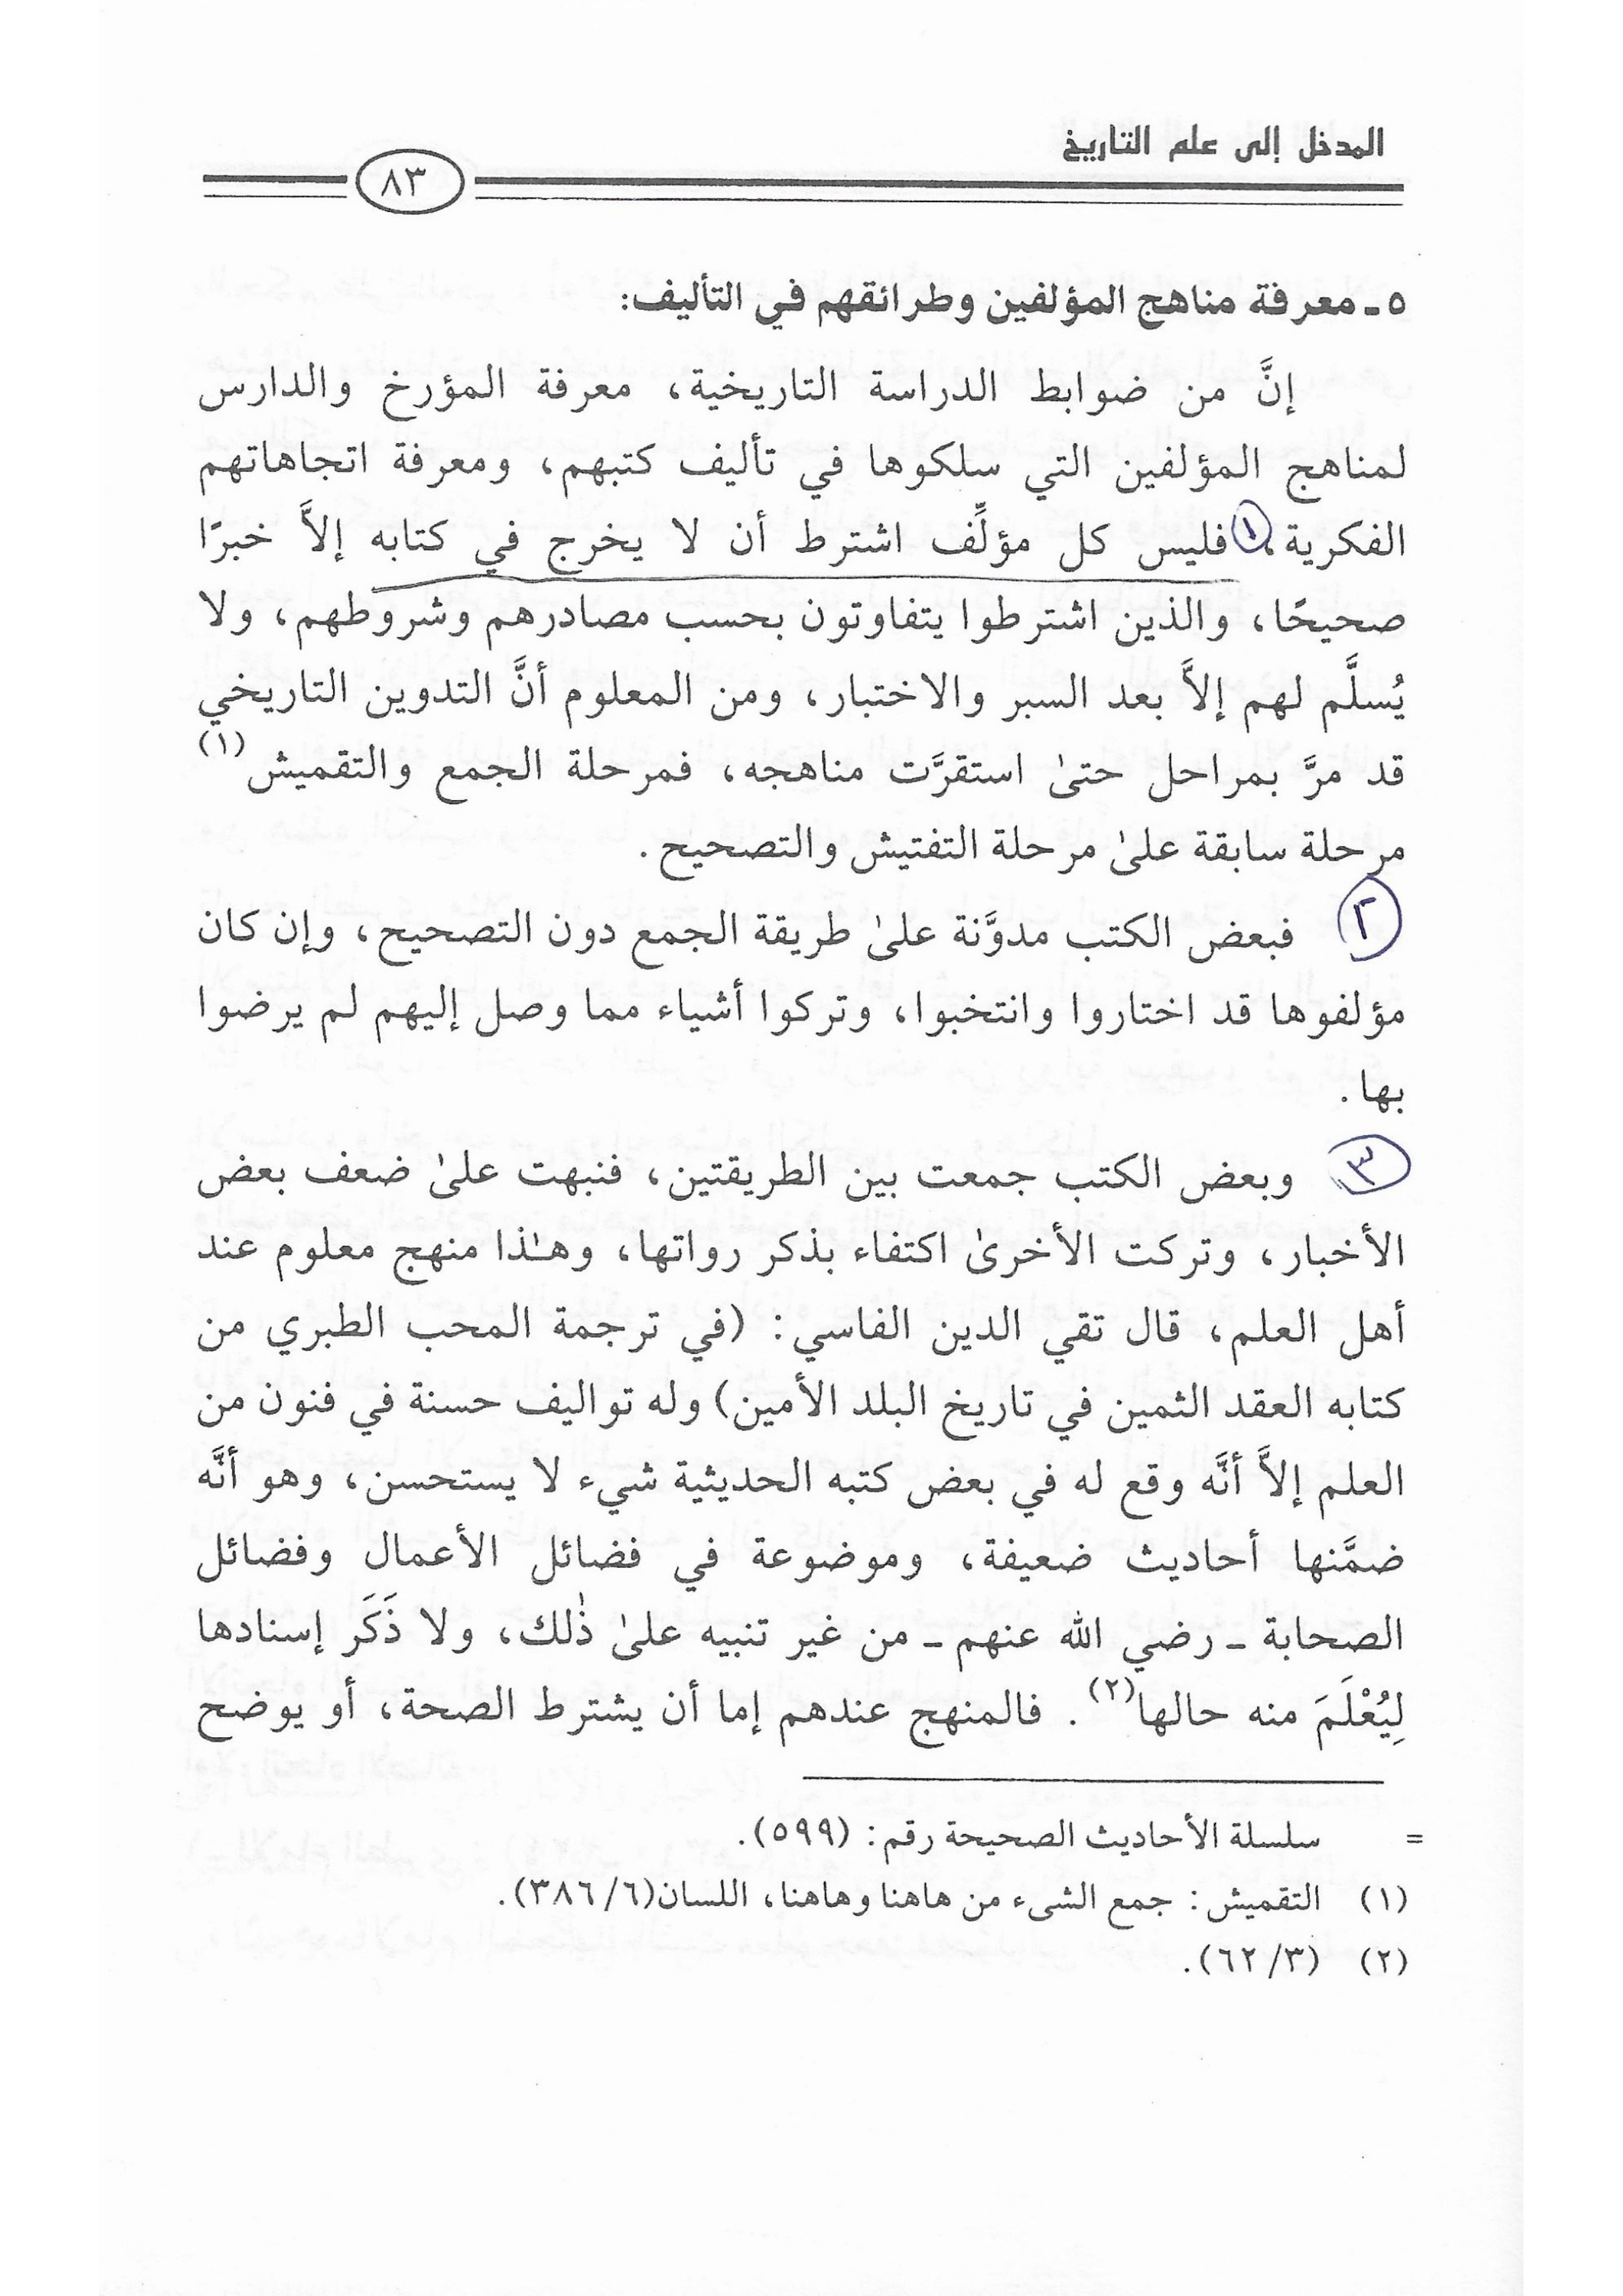 المدخل إلى علم التاريخ
٨٣
٥ ـ معرفة مناهج المؤلفين وطرائقهم في التأليف:
إنَّ من ضوابط الدراسة التاريخية، معرفة المؤرخ والدارس
لمناهج المؤلفين التي سلكوها في تأليف كتبهم، ومعرفة اتجاهاتهم
الفكرية، ١ فليس كل مؤلِّف اشترط أن لا يخرج في كتابه إلاَّ خبرًا
صحيحًا، والذين اشترطوا يتفاوتون بحسب مصادرهم وشروطهم، ولا
يُسلَّم لهم إلاَّ بعد السبر والاختبار، ومن المعلوم أنَّ التدوين التاريخي
قد مرَّ بمراحل حتىٰ استقرَّت مناهجه، فمرحلة الجمع والتقميش(١)
مرحلة سابقة علىٰ مرحلة التفتيش والتصحيح.
٢ فبعض الكتب مدوَّنة علىٰ طريقة الجمع دون التصحيح، وإن كان
مؤلفوها قد اختاروا وانتخبوا، وتركوا أشياء مما وصل إليهم لم يرضوا
بها.
٣ وبعض الكتب جمعت بين الطريقتين، فنبهت علىٰ ضعف بعض
الأخبار، وتركت الأخرىٰ اكتفاء بذكر رواتها، وهـٰذا منهج معلوم عند
أهل العلم، قال تقي الدين الفاسي: (في ترجمة المحب الطبري من
كتابه العقد الثمين في تاريخ البلد الأمين) وله تواليف حسنة في فنون من
العلم إلاَّ أنَّه وقع له في بعض كتبه الحديثية شيء لا يستحسن، وهو أنَّه
ضمَّنها أحاديث ضعيفة، وموضوعة في فضائل الأعمال وفضائل
الصحابة ـ رضي الله عنهم ـ من غير تنبيه علىٰ ذٰلك، ولا ذَكَر إسنادها
لِيُعْلَمَ منه حالها(٢). فالمنهج عندهم إما أن يشترط الصحة، أو يوضح
= سلسلة الأحاديث الصحيحة رقم: (٥٩٩).
(١) التقميش: جمع الشىء من هاهنا وهاهنا، اللسان(٣٨٦/٦).
(٢) (٦٢/٣).